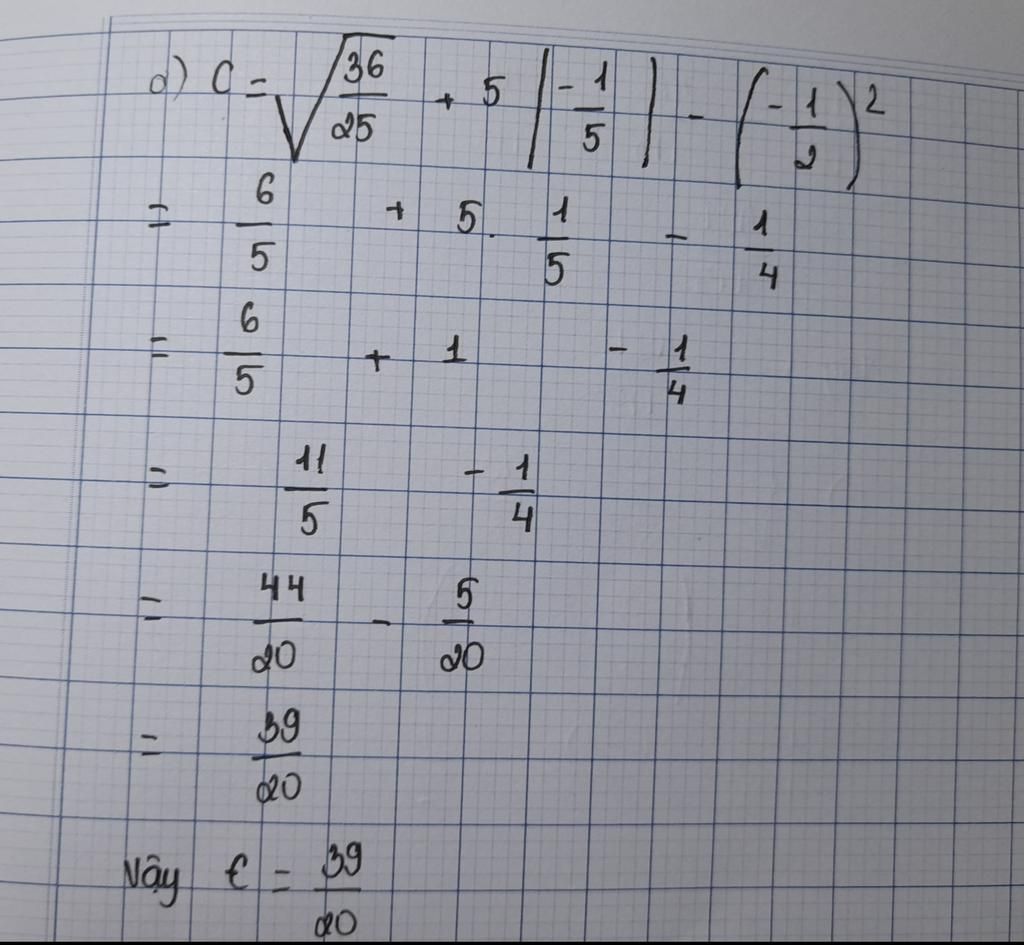 d) C = √(36/25) + 5 |-1/5| - (-1/2)²
= 6/5 + 5 . 1/5 - 1/4
= 6/5 + 1 - 1/4
= 11/5 - 1/4
= 44/20 - 5/20
= 39/20
Vậy C = 39/20